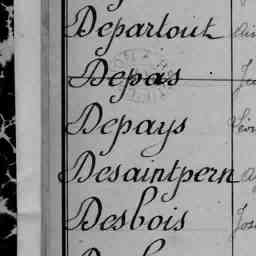 Departout
Depas
Depays
Desaintpern
Desbois